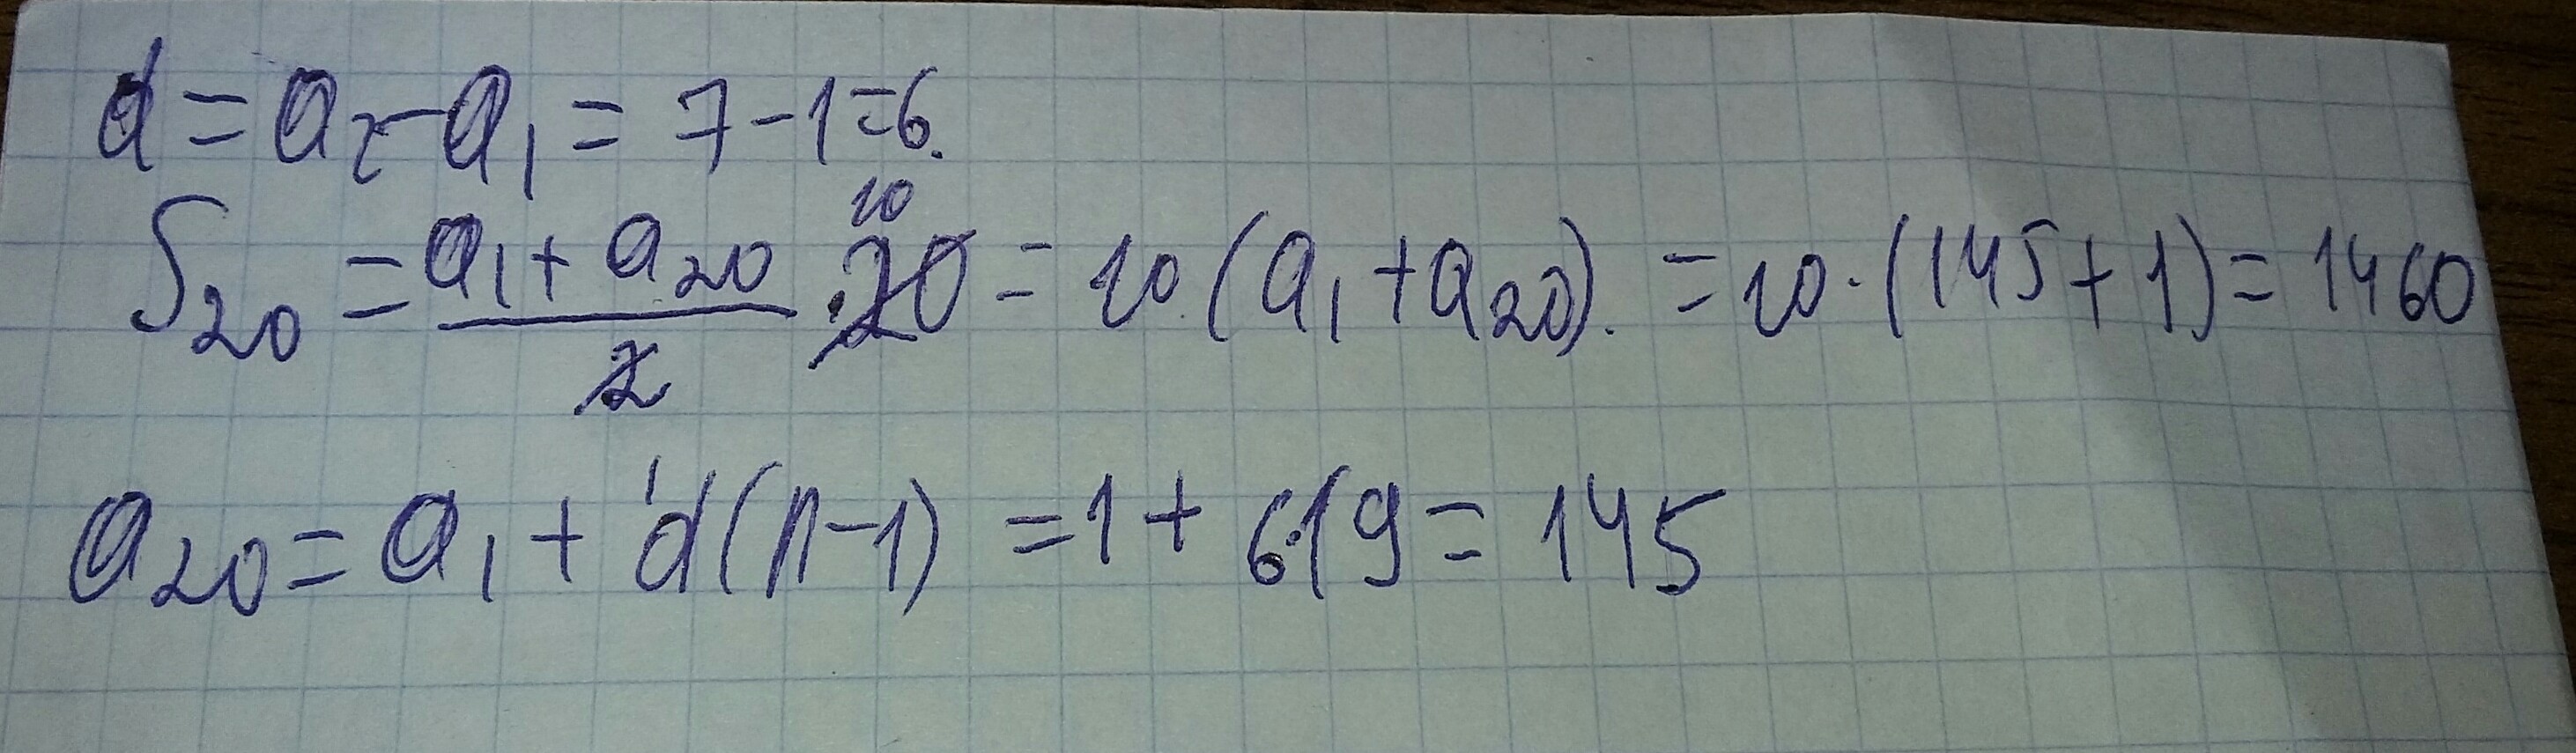 d = a₂ - a₁ = 7 - 1 = 6.
S₂₀ = (a₁ + a₂₀)/2 · 20 10 = 10 (a₁ + a₂₀). = 10 · (145 + 1) = 1460
a₂₀ = a₁ + d(n-1) = 1 + 6·19 = 145